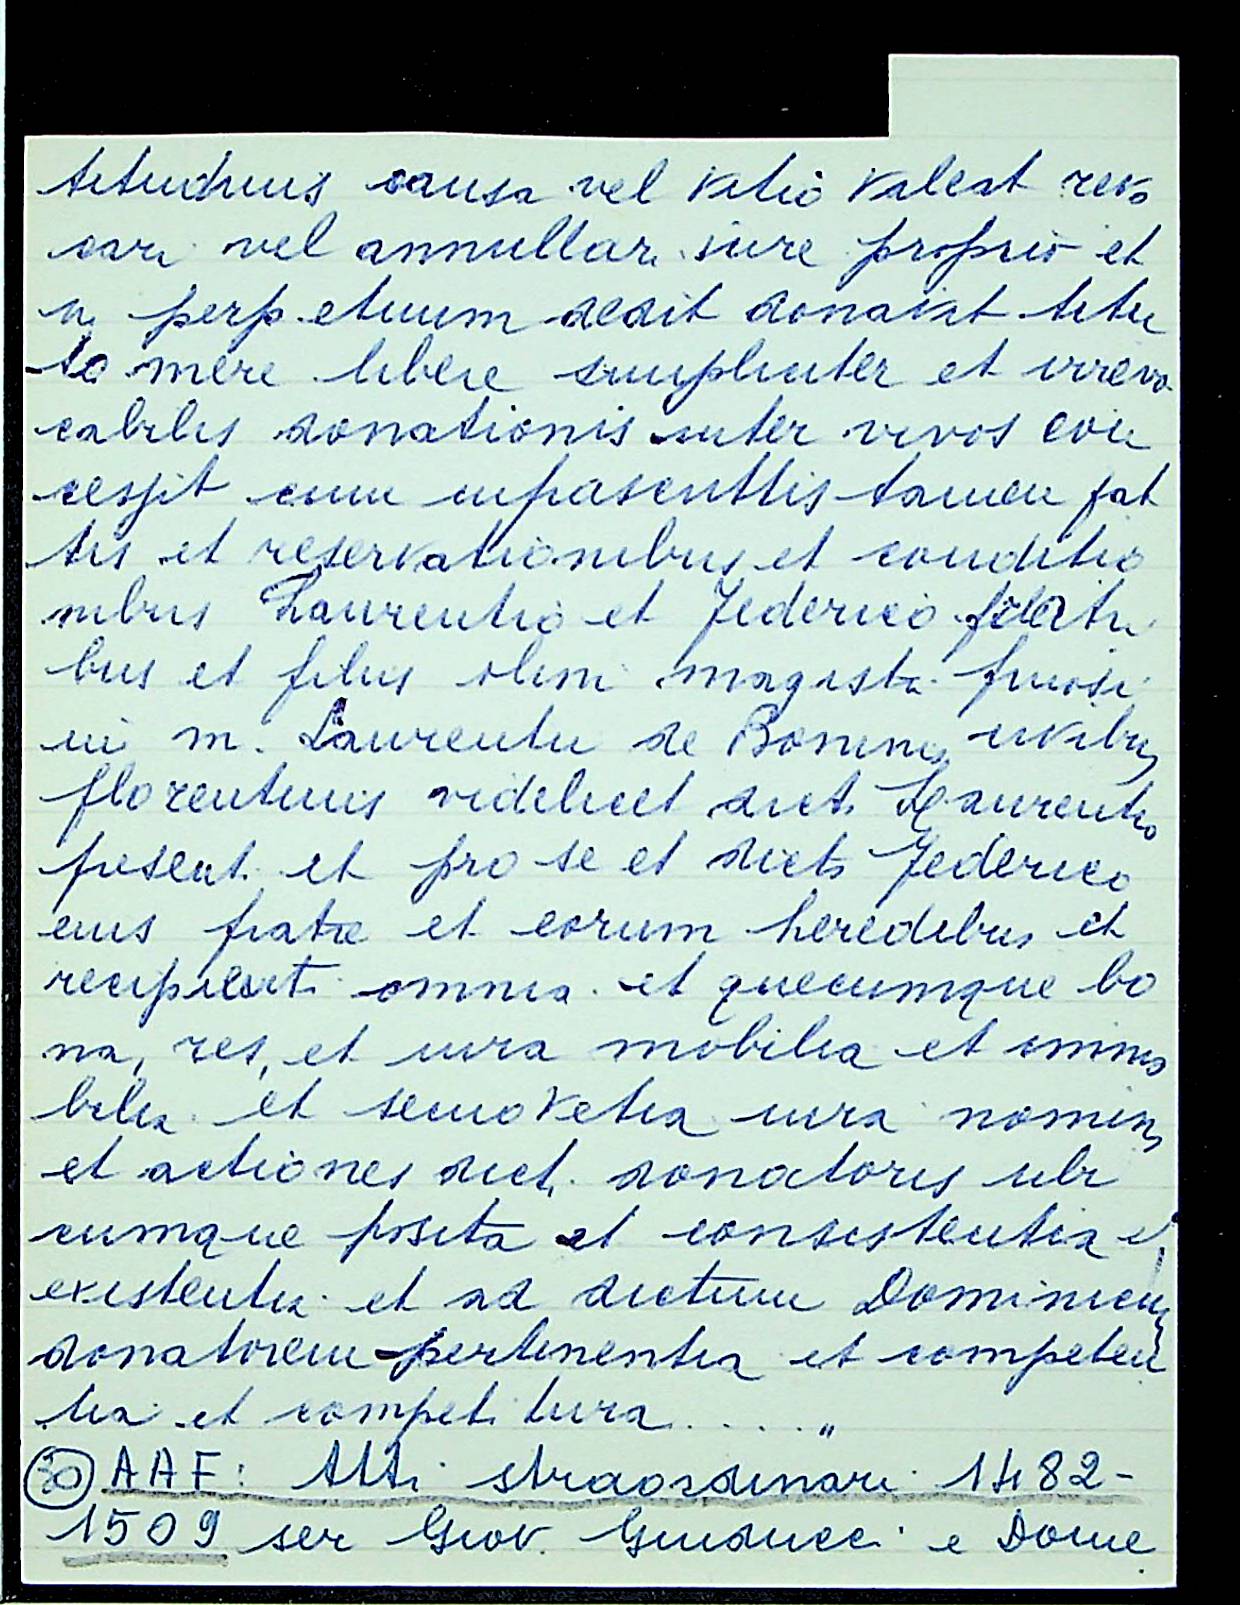 titudinis causa vel ratio valeat revo
cari vel annullari iure proprio et
in perpetuum dedit donavit titu
lo mere libere simpliciter et irrevo
cabilis donationis inter vivos con
cessit cum infrascrittis tamen pat
tis et reservationibus et conditio
nibus Laurentio et Federico fratri
bus et filiis olim magistri frurosi
ni m. Laurentii de Boninis civibus
florentinis videlicet dicto Laurentio
present. et pro se et dicto Federico
eius fratre et eorum heredibus et
recipienti omnia et quecumque bo
na, res, et iura mobilia et immo
bilia et semoventia iura nomina
et actiones dicti donatoris ubi
cumque posita et consistentia et
existentia et ad dictum Dominicum
donatorem pertinentia et competen
tia et competitura ....."
30 AAF: Atti straordinari 1482-
1509 ser Giov. Guiducci e Dome